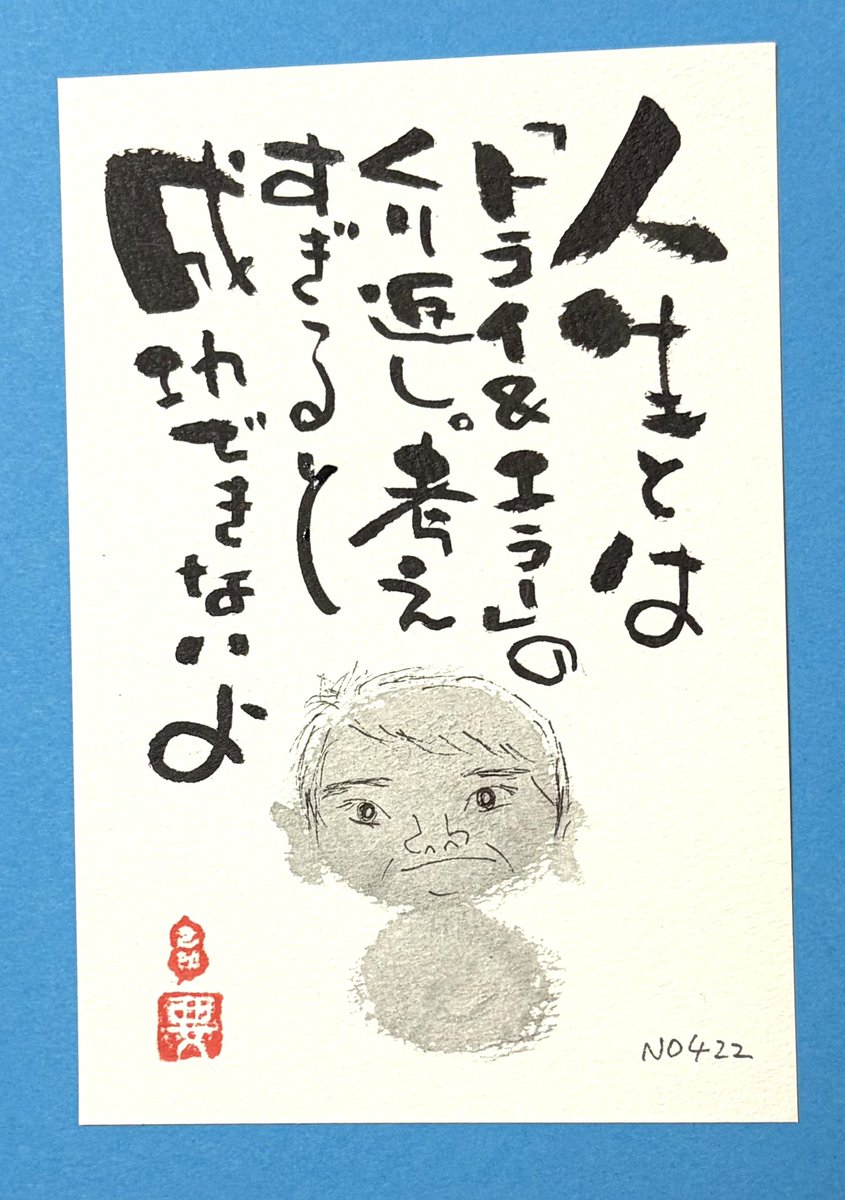 人生とは
「トライ&エラー」の
くり返し。考え
すぎると
成功できないよ
要
NO422